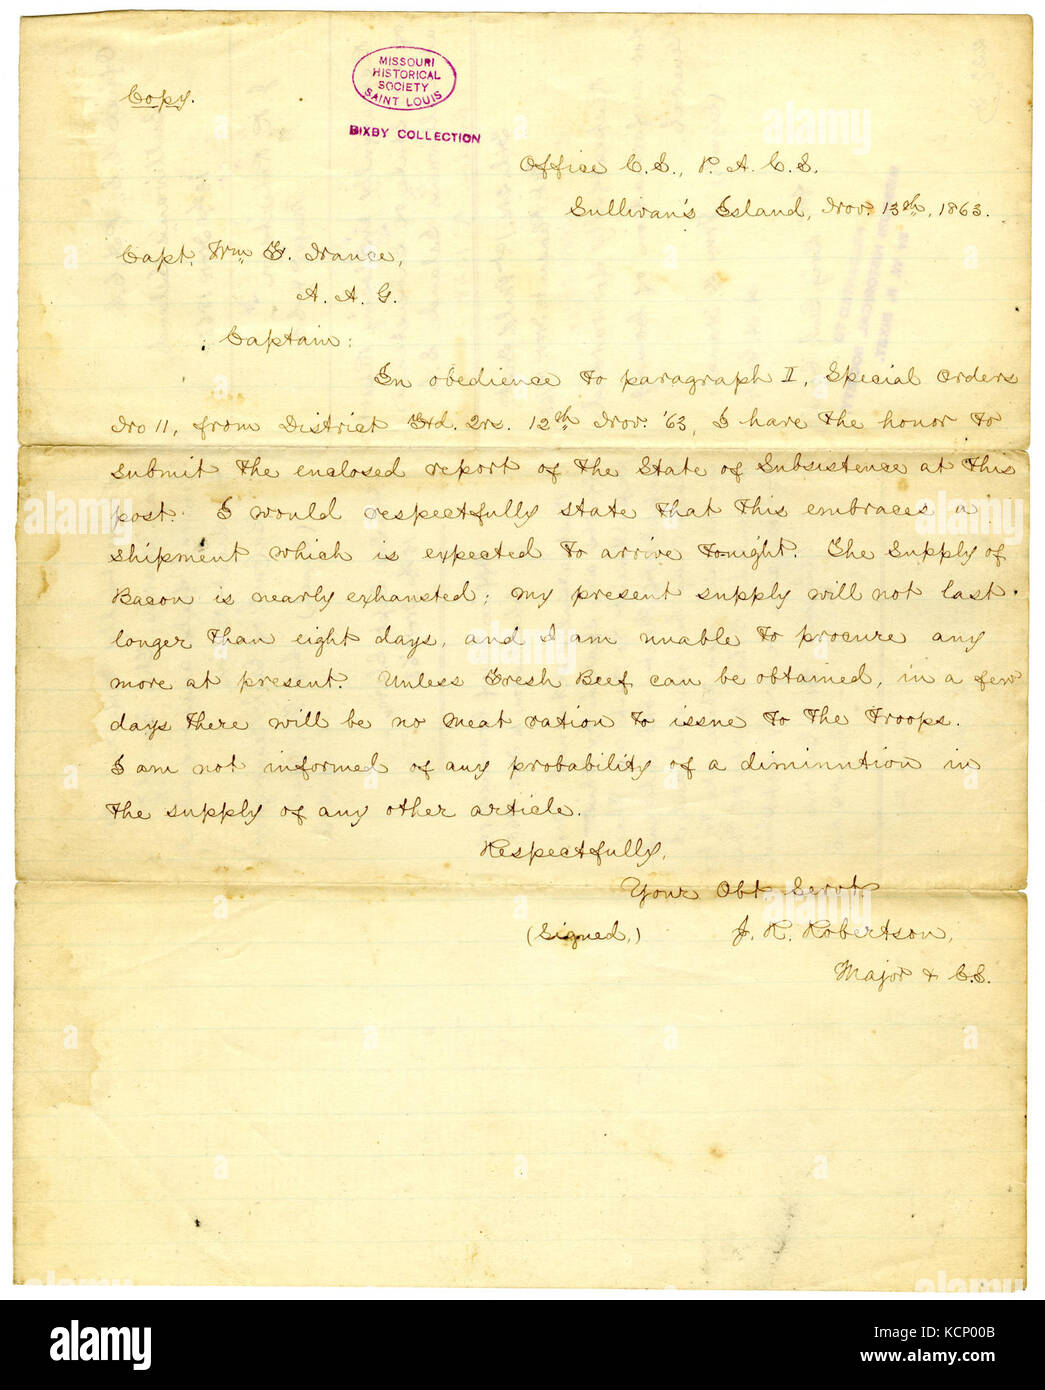 Copy.
MISSOURI
HISTORICAL
SOCIETY
SAINT LOUIS
BIXBY COLLECTION
Office C.S., P. A. C. S.
Sullivan's Island, Nov. 13th, 1863.
Capt. Wm G. Nance,
A. A. G.
Captain:
In obedience to paragraph II, Special Orders
No 11, from District Hd. Qrs. 12th Nov. '63, I have the honor to
submit the enclosed report of the State of Subsistence at this
post. I would respectfully state that this embraces a
shipment which is expected to arrive tonight. The supply of
Bacon is nearly exhausted; my present supply will not last
longer than eight days, and I am unable to procure any
more at present. Unless Fresh Beef can be obtained, in a few
days there will be no meat ration to issue to the troops.
I am not informed of any probability of a diminution in
the supply of any other article.
Respectfully,
Your Obt. Servt.
(Signed,) J. H. Robertson,
Major & C.S.
alamy
Image ID: KCP00B
www.alamy.com